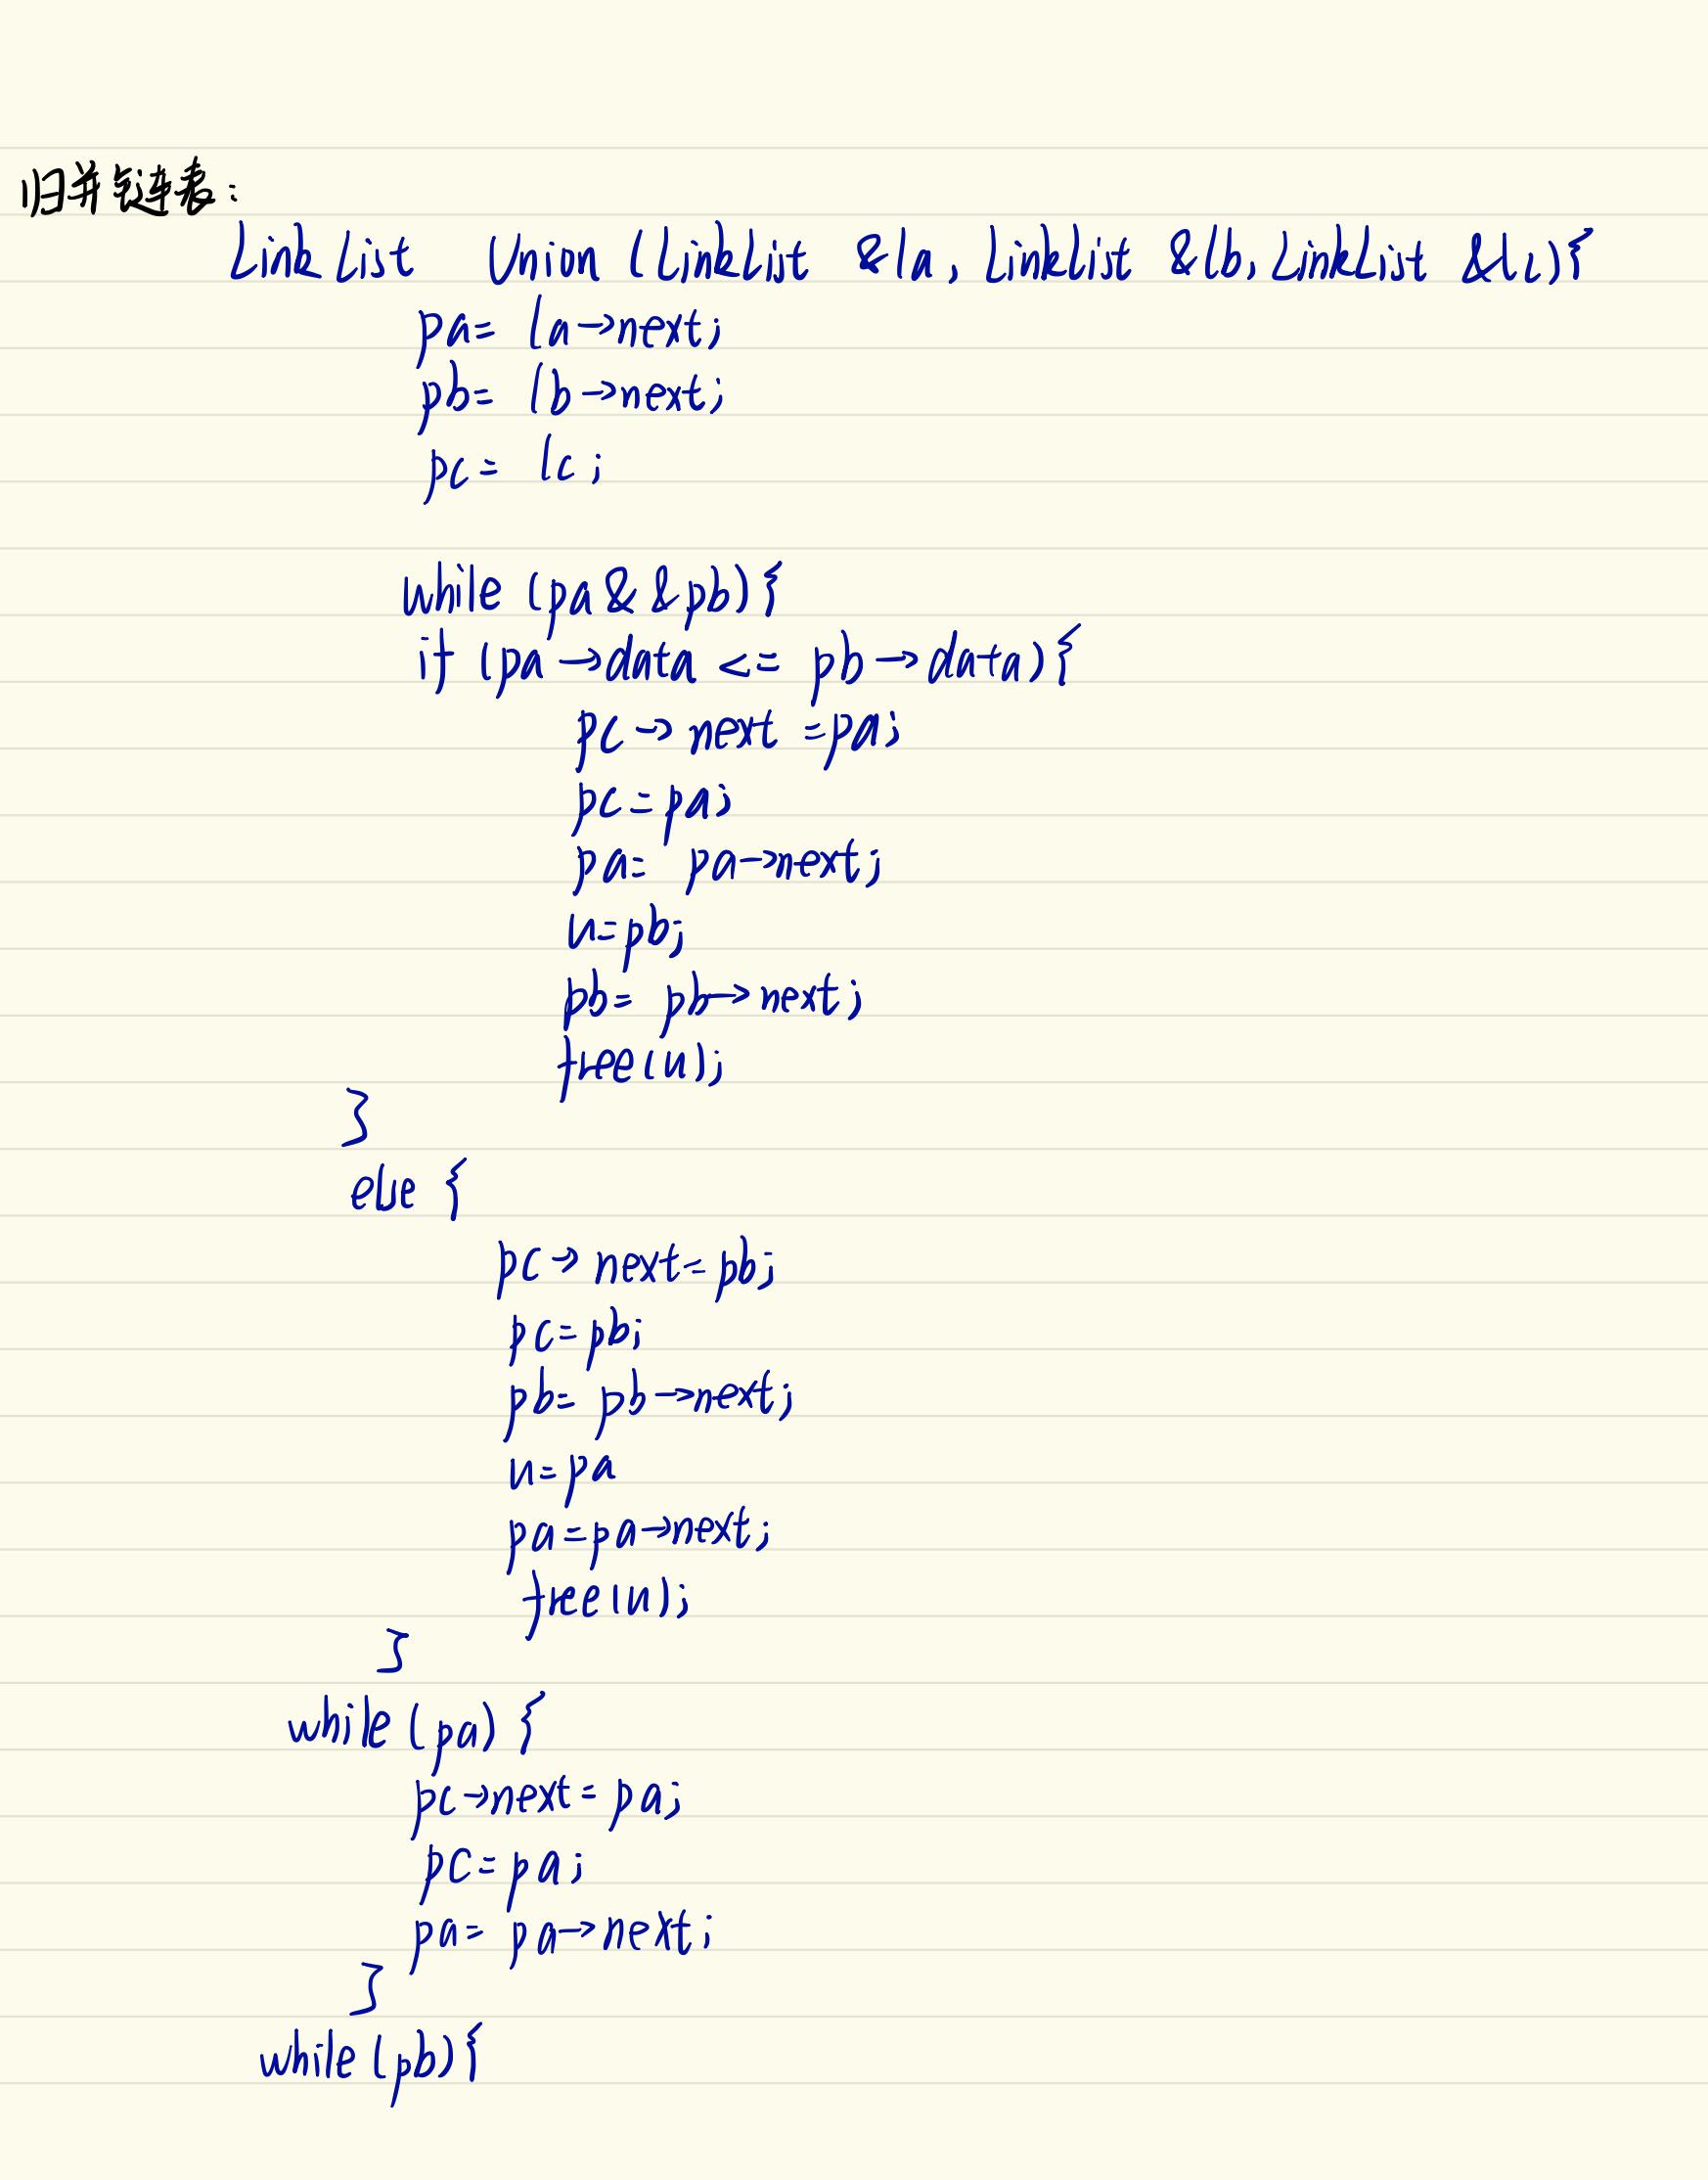 归并链表：
LinkList Union (LinkList &la, LinkList &lb, LinkList &lc){
pa= la→next;
pb= lb→next;
pc= lc;
while (pa&&pb){
if (pa→data <= pb→data){
pc→next =pa;
pc=pa;
pa= pa→next;
u=pb;
pb= pb→next;
free(u);
}
else {
pc→next=pb;
pc=pb;
pb= pb→next;
u=pa
pa=pa→next;
free(u);
}
while (pa) {
pc→next= pa;
pc=pa;
pa= pa→next;
}
while (pb){